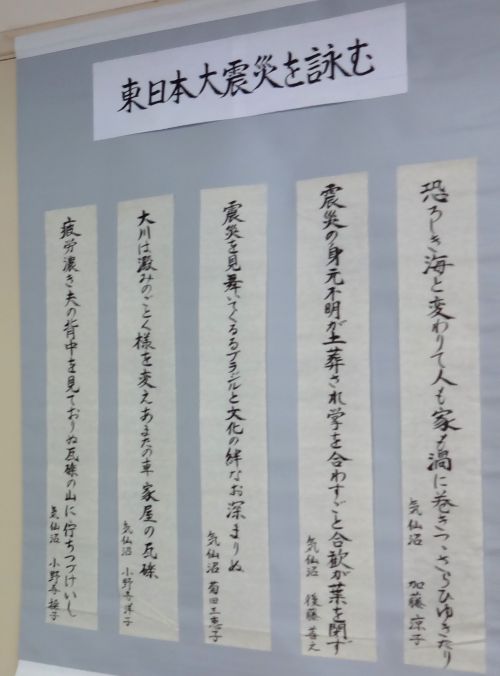 東日本大震災を詠む
恐ろしき海と変わりて人も家も渦に巻きつつさらひゆきたり
気仙沼 加藤涼子
震災の身元不明が土葬され学を合わすごと合歓が葉を閉ず
気仙沼 後藤善之
震災を見舞いてくるるブラジルと文化の絆なお深まりぬ
気仙沼 菊田工恵子
大川は澱みのごとく様を変えあまたの車家屋の瓦礫
気仙沼 小野寺洋子
疲労濃き夫の背中を見ておりぬ瓦礫の山に佇ちつづけいし
気仙沼 小野寺 子